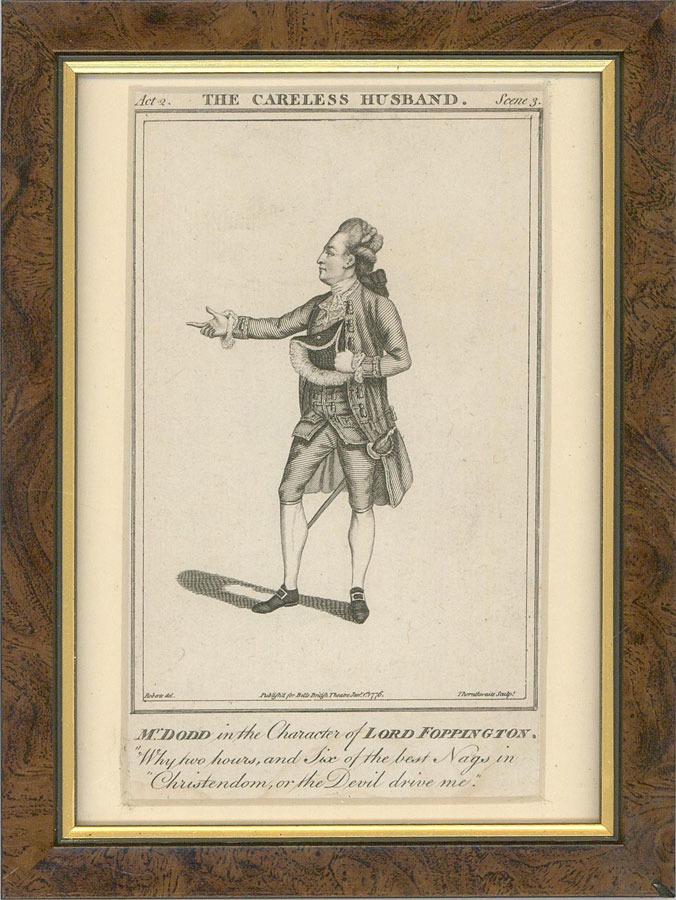 Act 2. THE CARELESS HUSBAND. Scene 3.
Roberts del. Publish'd for Bells British Theatre Jany. 1st. 1776. Thornthwaite Sculpt.
Mr. DODD in the Character of LORD FOPPINGTON.
"Why two hours, and Six of the best Nags in
"Christendom, or the Devil drive me."